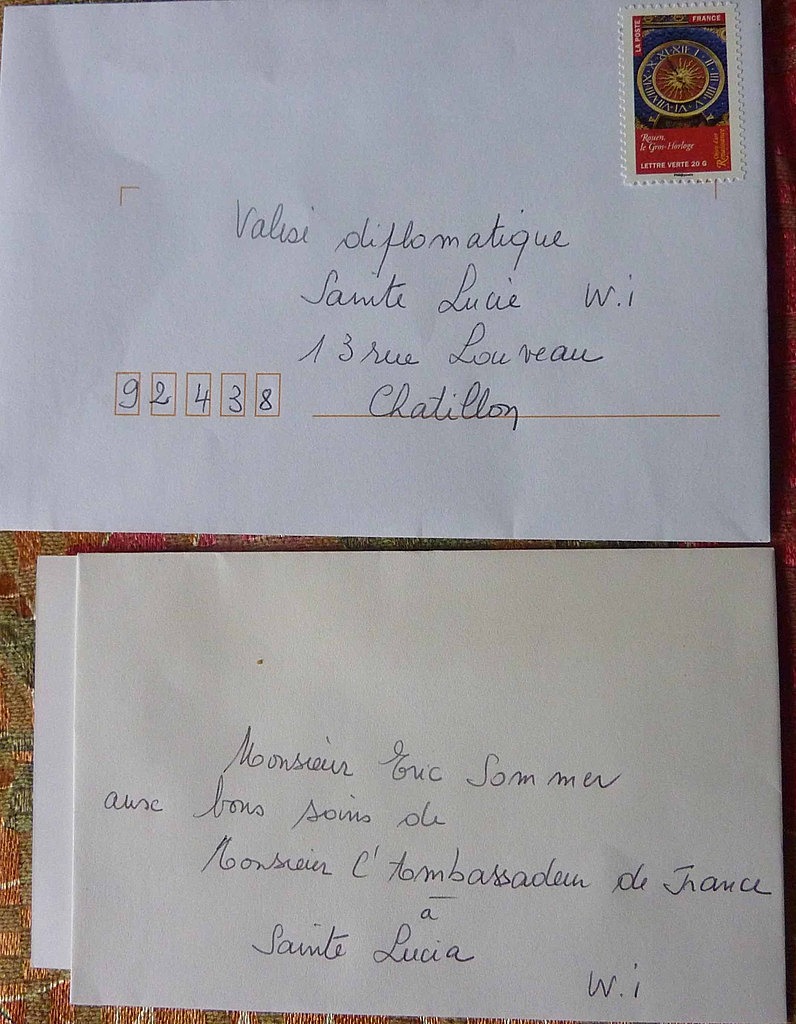 LA POSTE
FRANCE
Rouen,
le Gros-Horloge
Renaissance
LETTRE VERTE 20 G
Valise diplomatique
Sainte Lucie W.i
13 rue Louveau
92438 Chatillon
Monsieur Eric Sommer
aux bons soins de
Monsieur l'Ambassadeur de France
à
Sainte Lucia
W.i